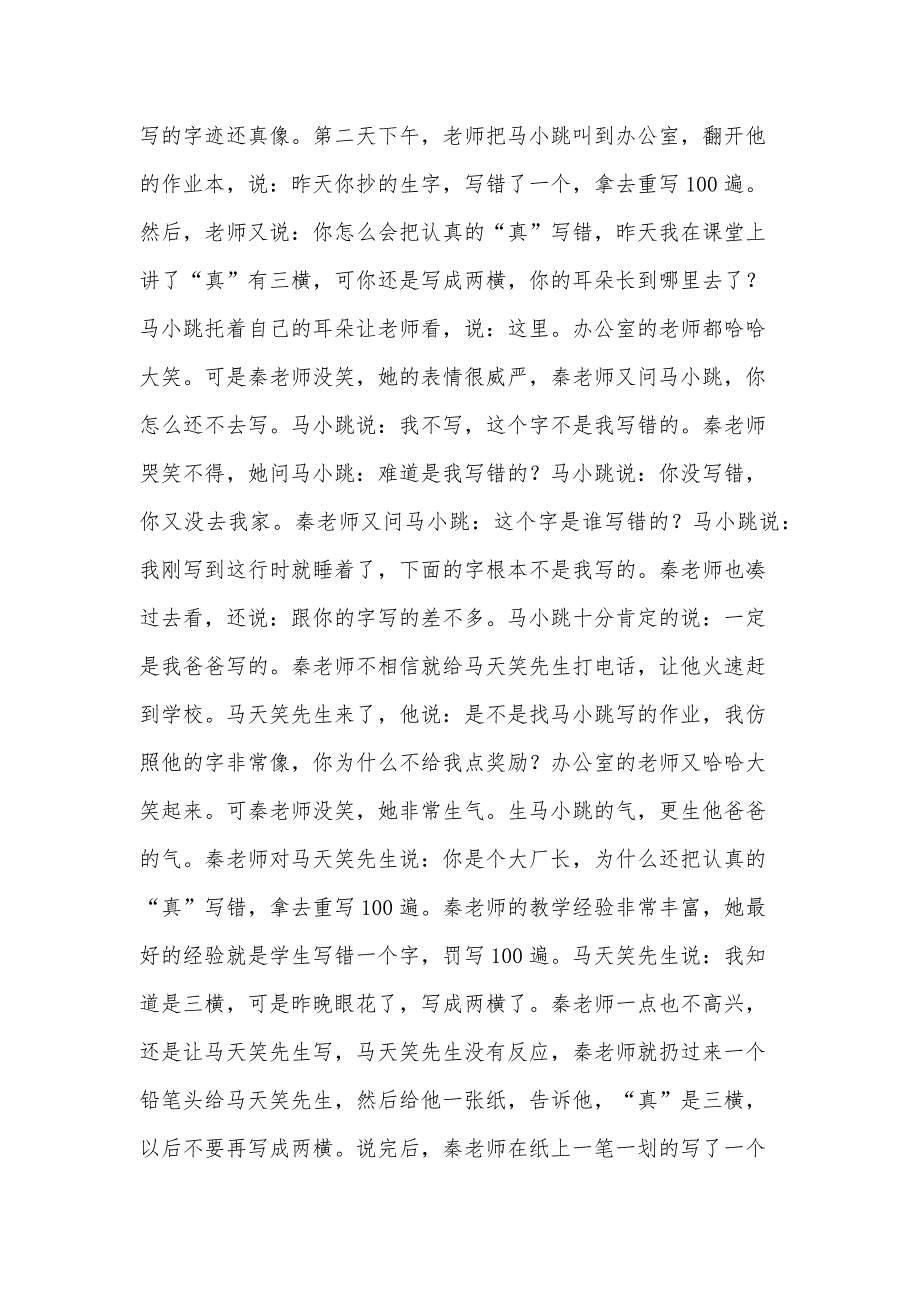 写的字迹还真像。第二天下午，老师把马小跳叫到办公室，翻开他
的作业本，说：昨天你抄的生字，写错了一个，拿去重写 100 遍。
然后，老师又说：你怎么会把认真的“真”写错，昨天我在课堂上
讲了“真”有三横，可你还是写成两横，你的耳朵长到哪里去了？
马小跳托着自己的耳朵让老师看，说：这里。办公室的老师都哈哈
大笑。可是秦老师没笑，她的表情很威严，秦老师又问马小跳，你
怎么还不去写。马小跳说：我不写，这个字不是我写错的。秦老师
哭笑不得，她问马小跳：难道是我写错的？马小跳说：你没写错，
你又没去我家。秦老师又问马小跳：这个字是谁写错的？马小跳说：
我刚写到这行时就睡着了，下面的字根本不是我写的。秦老师也凑
过去看，还说：跟你的字写的差不多。马小跳十分肯定的说：一定
是我爸爸写的。秦老师不相信就给马天笑先生打电话，让他火速赶
到学校。马天笑先生来了，他说：是不是找马小跳写的作业，我仿
照他的字非常像，你为什么不给我点奖励？办公室的老师又哈哈大
笑起来。可秦老师没笑，她非常生气。生马小跳的气，更生他爸爸
的气。秦老师对马天笑先生说：你是个大厂长，为什么还把认真的
“真”写错，拿去重写 100 遍。秦老师的教学经验非常丰富，她最
好的经验就是学生写错一个字，罚写 100 遍。马天笑先生说：我知
道是三横，可是昨晚眼花了，写成两横了。秦老师一点也不高兴，
还是让马天笑先生写，马天笑先生没有反应，秦老师就扔过来一个
铅笔头给马天笑先生，然后给他一张纸，告诉他，“真”是三横，
以后不要再写成两横。说完后，秦老师在纸上一笔一划的写了一个